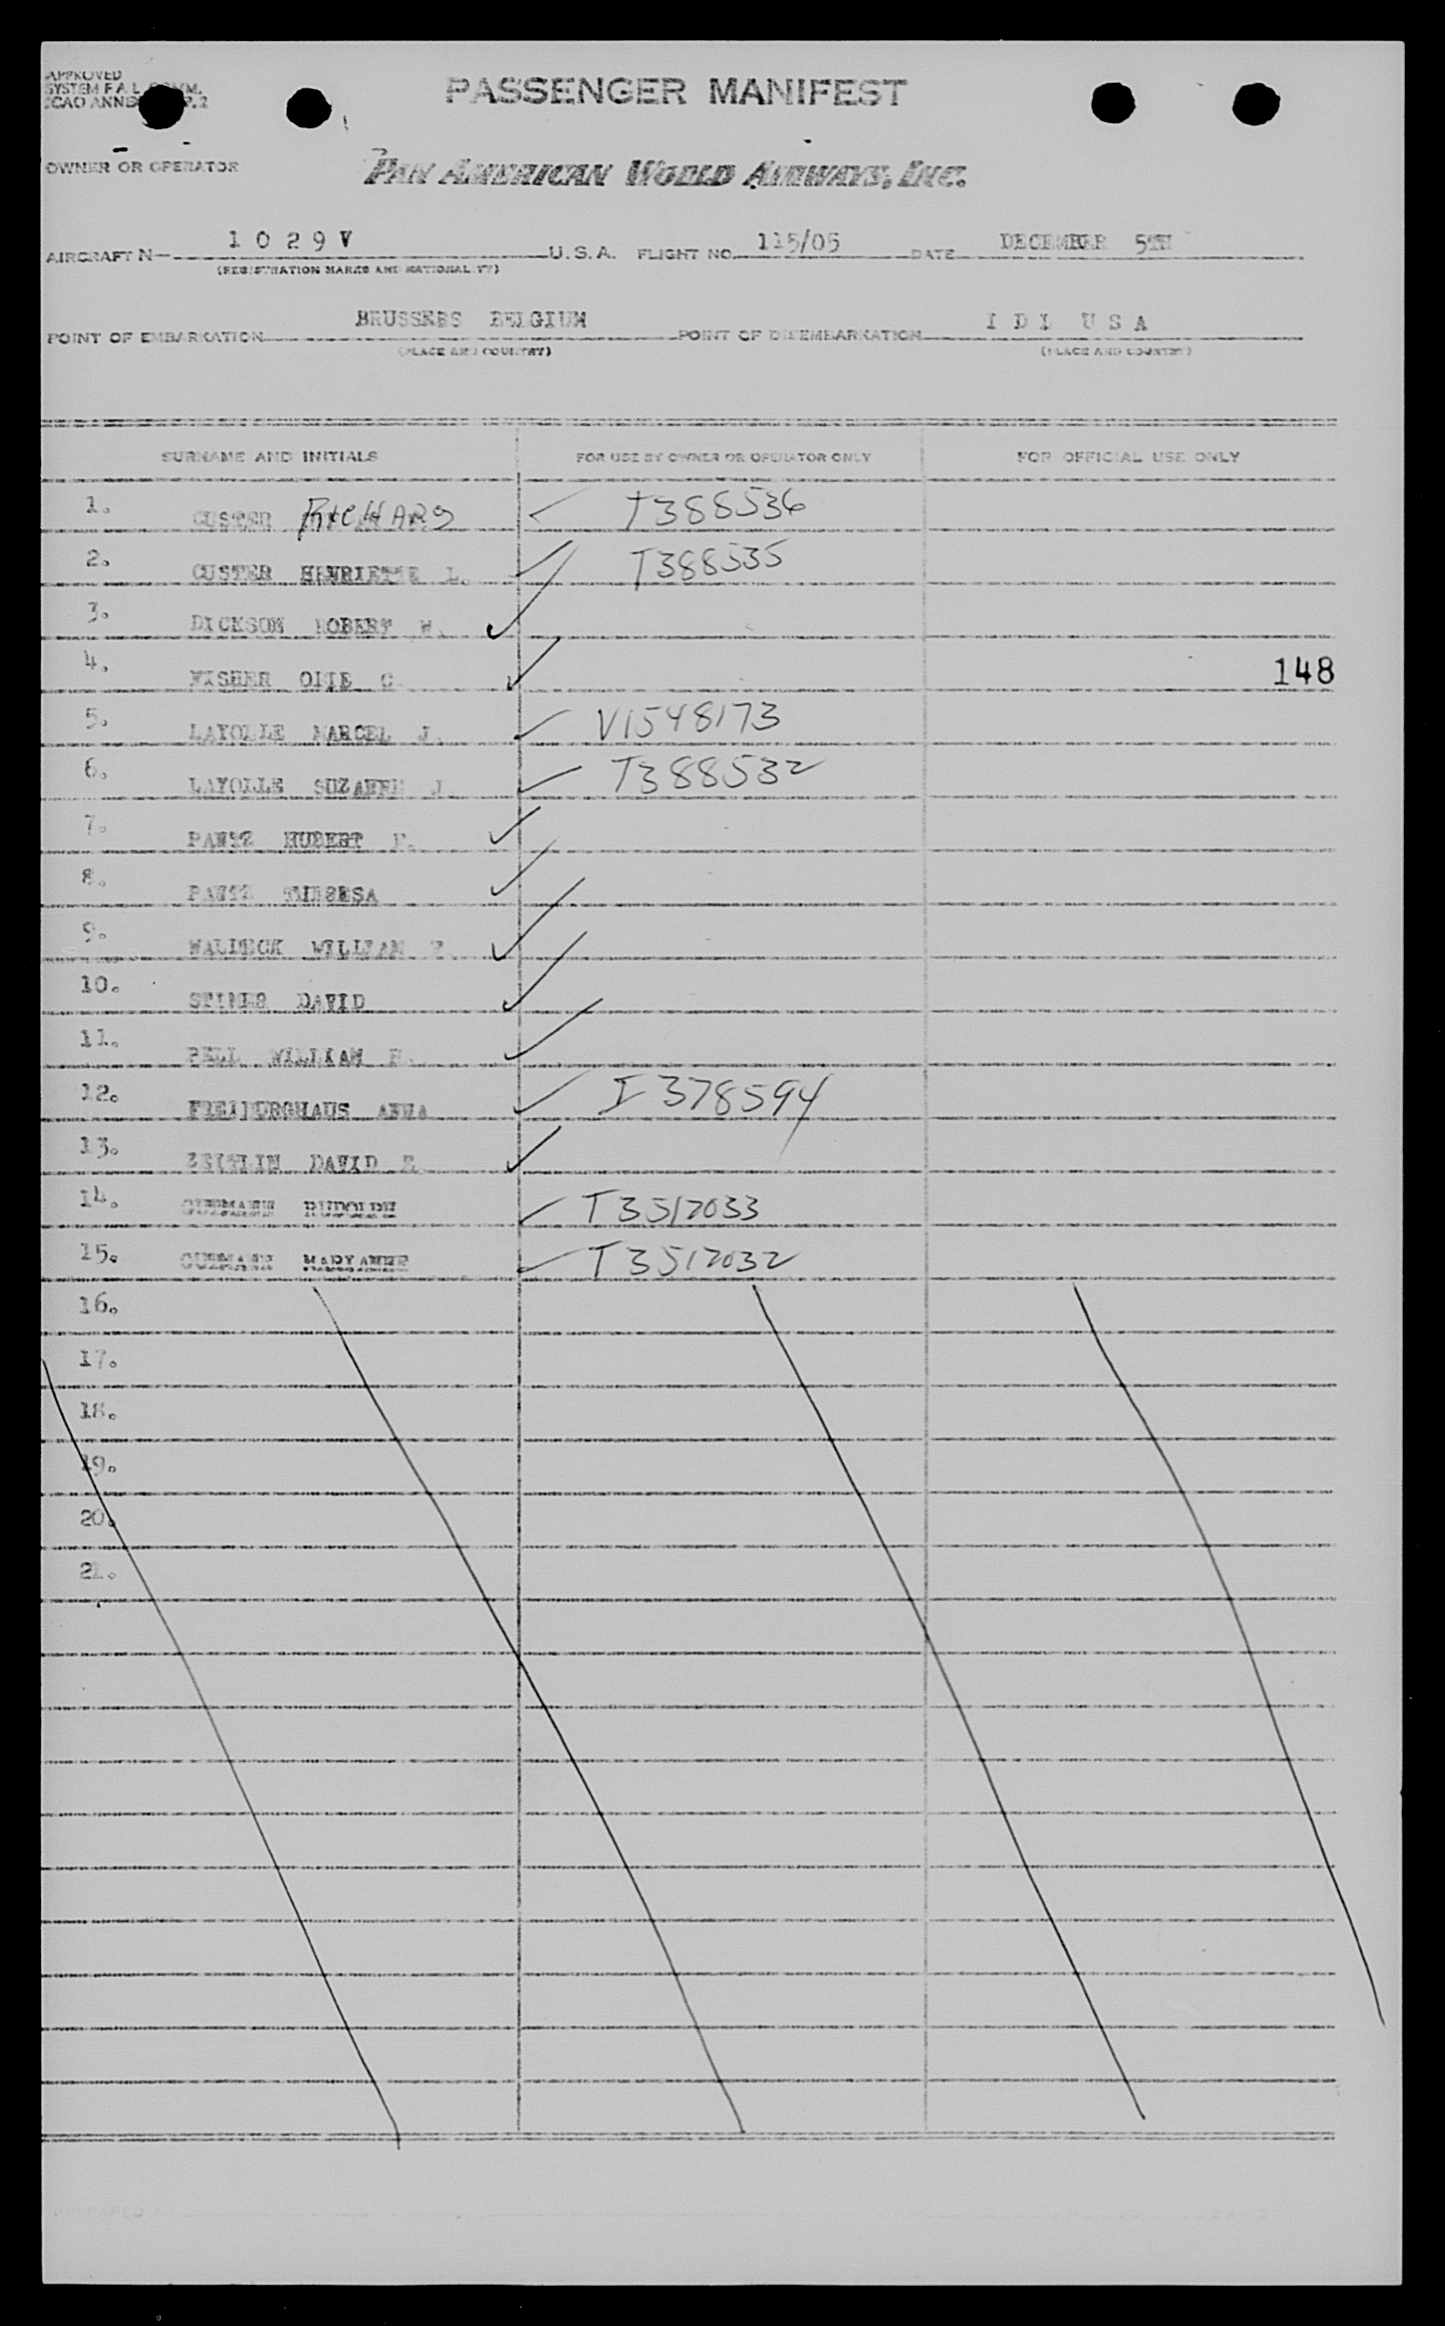 APPROVED
SYSTEM F.A.L. COMM.
ICAO ANNEX
PASSENGER MANIFEST
OWNER OR OPERATOR PAN AMERICAN WORLD AIRWAYS, INC.
AIRCRAFT N- 1 0 2 9 V U.S.A. FLIGHT NO. 115/05 DATE DECEMBER 5TH
(REGISTRATION MARKS AND NATIONALITY)
POINT OF EMBARKATION BRUSSERS BELGIUM POINT OF DISEMBARKATION I D L U S A
(PLACE AND COUNTRY) (PLACE AND COUNTRY)
SURNAME AND INITIALS FOR USE BY OWNER OR OPERATOR ONLY FOR OFFICIAL USE ONLY
1. CUSTER RICHARD T388536
2. CUSTER HENRIETTE L. T388535
3. DICKSON ROBERT W.
4. FISHER OLIE C 148
5. LAYOLLE MARCEL J. V1548173
6. LAYOLLE SUZANNE J T388532
7. PANTZ HUBERT
8. PANTZ THERESA
9. WALDECK WILLIAM
10. DAVID
11. PELL WILLIAM
12. FREIBURGHAUS ANNA I 378594
13. ZEITLIN DAVID
14. RUDOLPH T3517033
15. MARYANNE T3517032
16.
17.
18.
19.
20.
21.